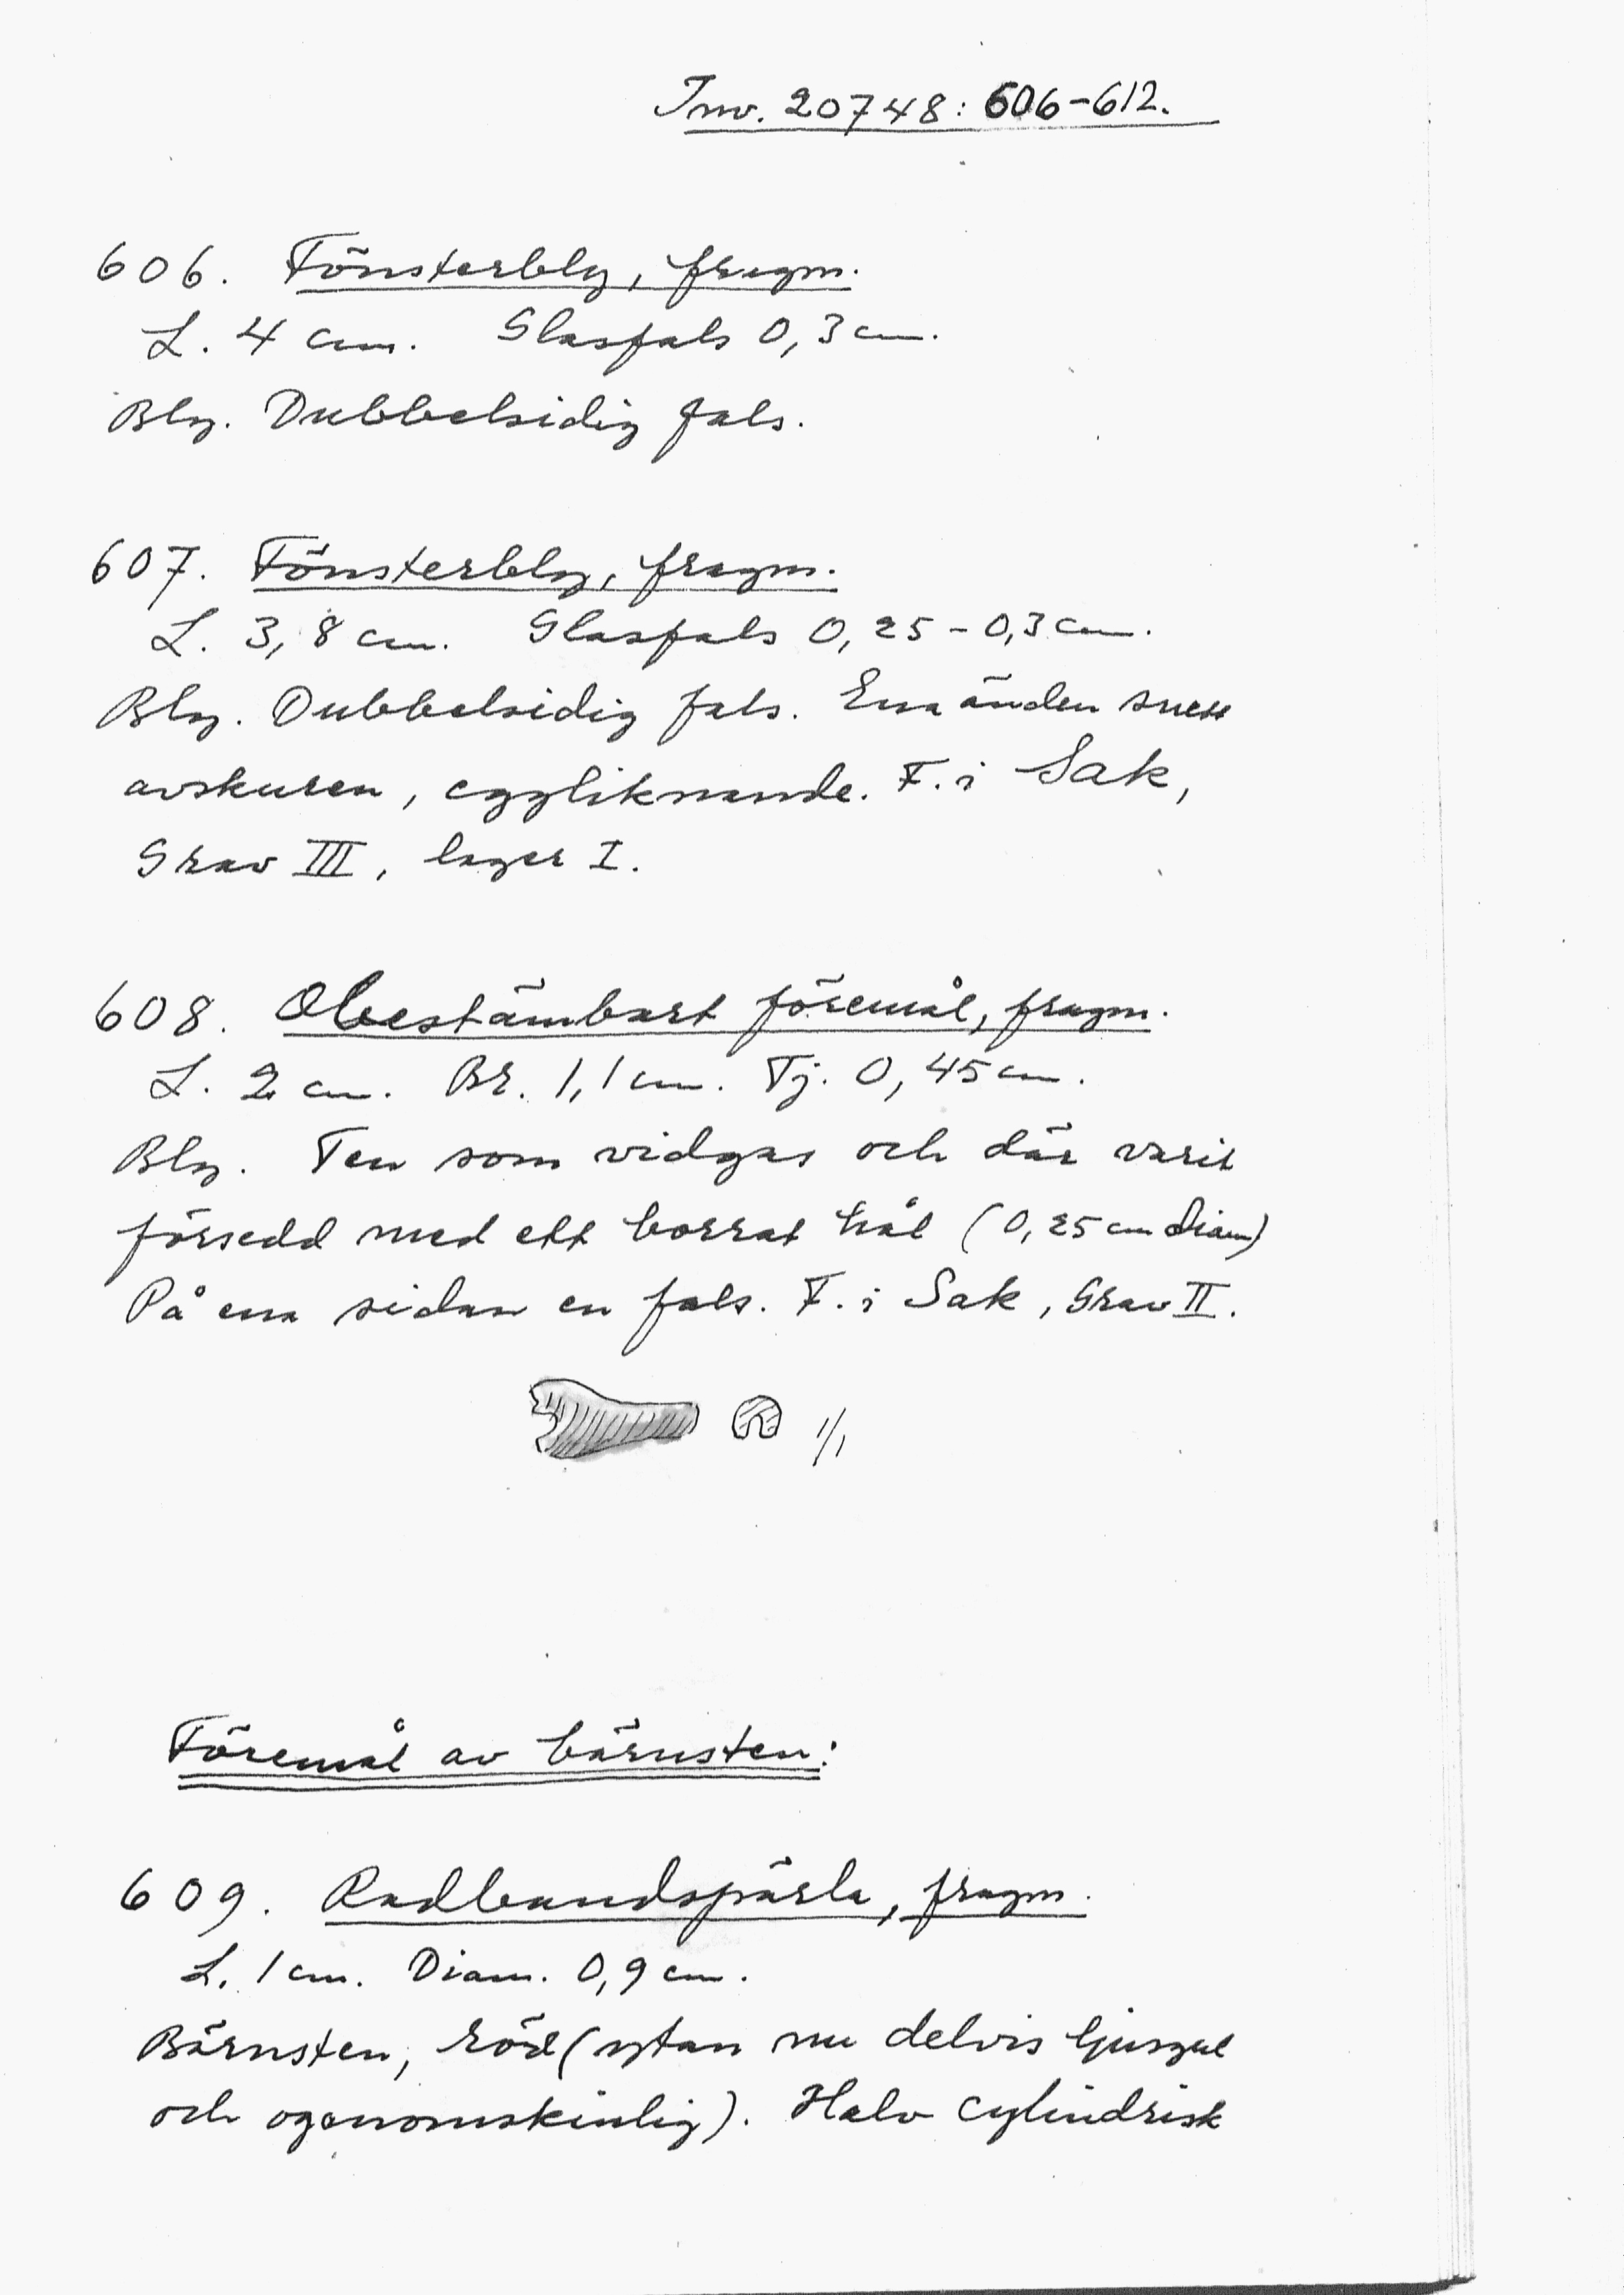 Inv. 20748: 606-612.
606. Fönsterbly, fragm.
L. 4 cm. Glasfals 0,3 cm.
Bly. Dubbelsidig fals.
607. Fönsterbly, fragm.
L. 3,8 cm. Glasfals 0,25-0,3 cm.
Bly. Dubbelsidig fals. Ena änden snett
avskuren, eggliknande. F. i Sak,
Grav III, lager I.
608. Obestämbart föremål, fragm.
L. 2 cm. Br. 1,1 cm. Tj. 0,45 cm.
Bly. Ten som vidgas och där varit
försedd med ett borrat hål (0,25 cm diam)
På ena sidan en fals. F. i Sak, Grav II.
1/1
Föremål av bärnsten:
609. Radbandspärla, fragm.
L. 1 cm. Diam. 0,9 cm.
Bärnsten, röd (ytan nu delvis ljusgul
och ogenomskinlig). Halv cylindrisk